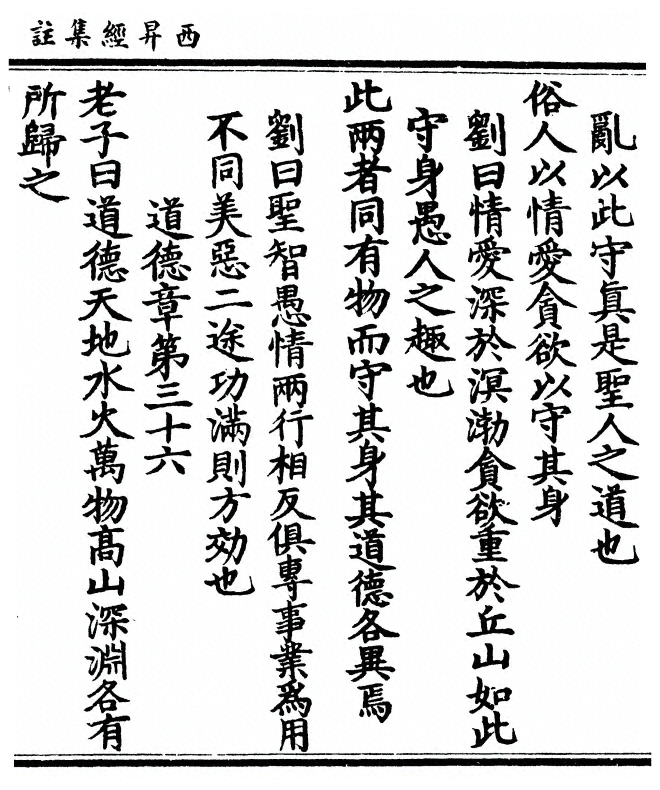 西昇經集註
亂以此守真是聖人之道也
俗人以情愛貪欲以守其身
劉曰情愛深於溟渤貪欲重於丘山如此
守身愚人之趣也
此兩者同有物而守其身其道德各異焉
劉曰聖智愚情兩行相反俱專事業為用
不同美惡二途功滿則方効也
道德章第三十六
老子曰道德天地水火萬物高山深淵各有
所歸之